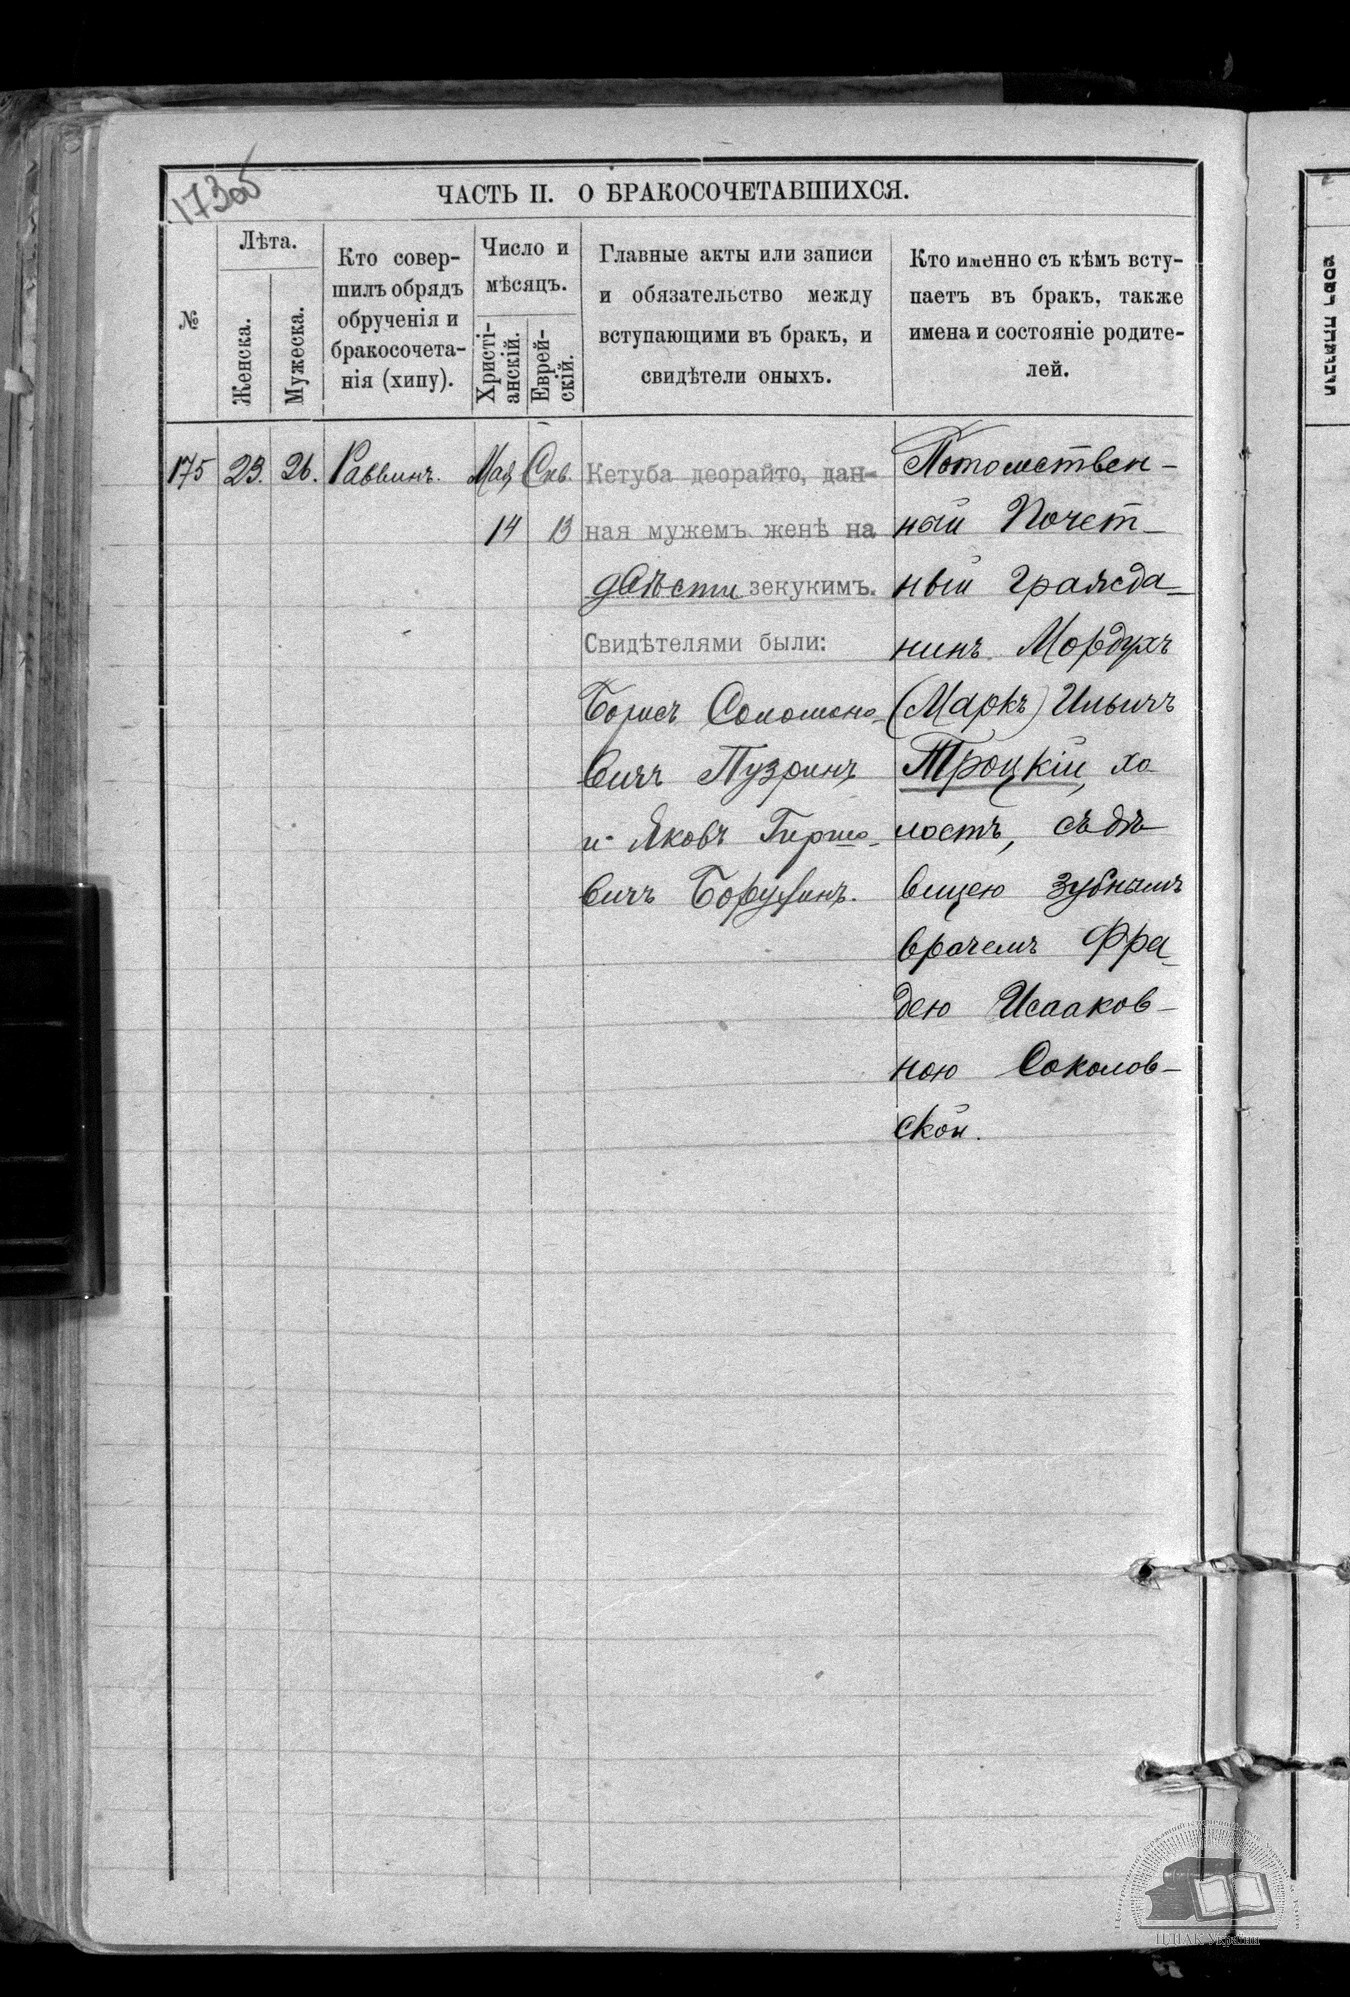 173об
ЧАСТЬ II. О БРАКОСОЧЕТАВШИХСЯ.
№
Лѣта.
Женска.
Мужеска.
Кто совер-
шилъ обрядъ
обрученія и
бракосочета-
нія (хипу).
Число и
мѣсяцъ.
Христі-
анскій.
Еврей-
скій.
Главные акты или записи
и обязательство между
вступающими въ бракъ, и
свидѣтели оныхъ.
Кто именно съ кѣмъ всту-
паетъ въ бракъ, также
имена и состояніе родите-
лей.
175
23.
26.
Раввинъ.
Мая
14
Сив.
13
Кетуба деорайто, дан-
ная мужемъ женѣ на
двѣсти зекукимъ.
Свидѣтелями были:
Борисъ Соломоно-
вичъ Пузринъ
и Яковъ Гиршо-
вичъ Борухинъ.
Потомствен-
ный Почет-
ный гражда-
нинъ Мордухъ
(Маркъ) Ильичъ
Троцкій, хо
лостъ, съ дѣ-
вицею зубнымъ
врачемъ Фра-
дею Исааков-
ною Соколов-
ской.
ЦДІАК України